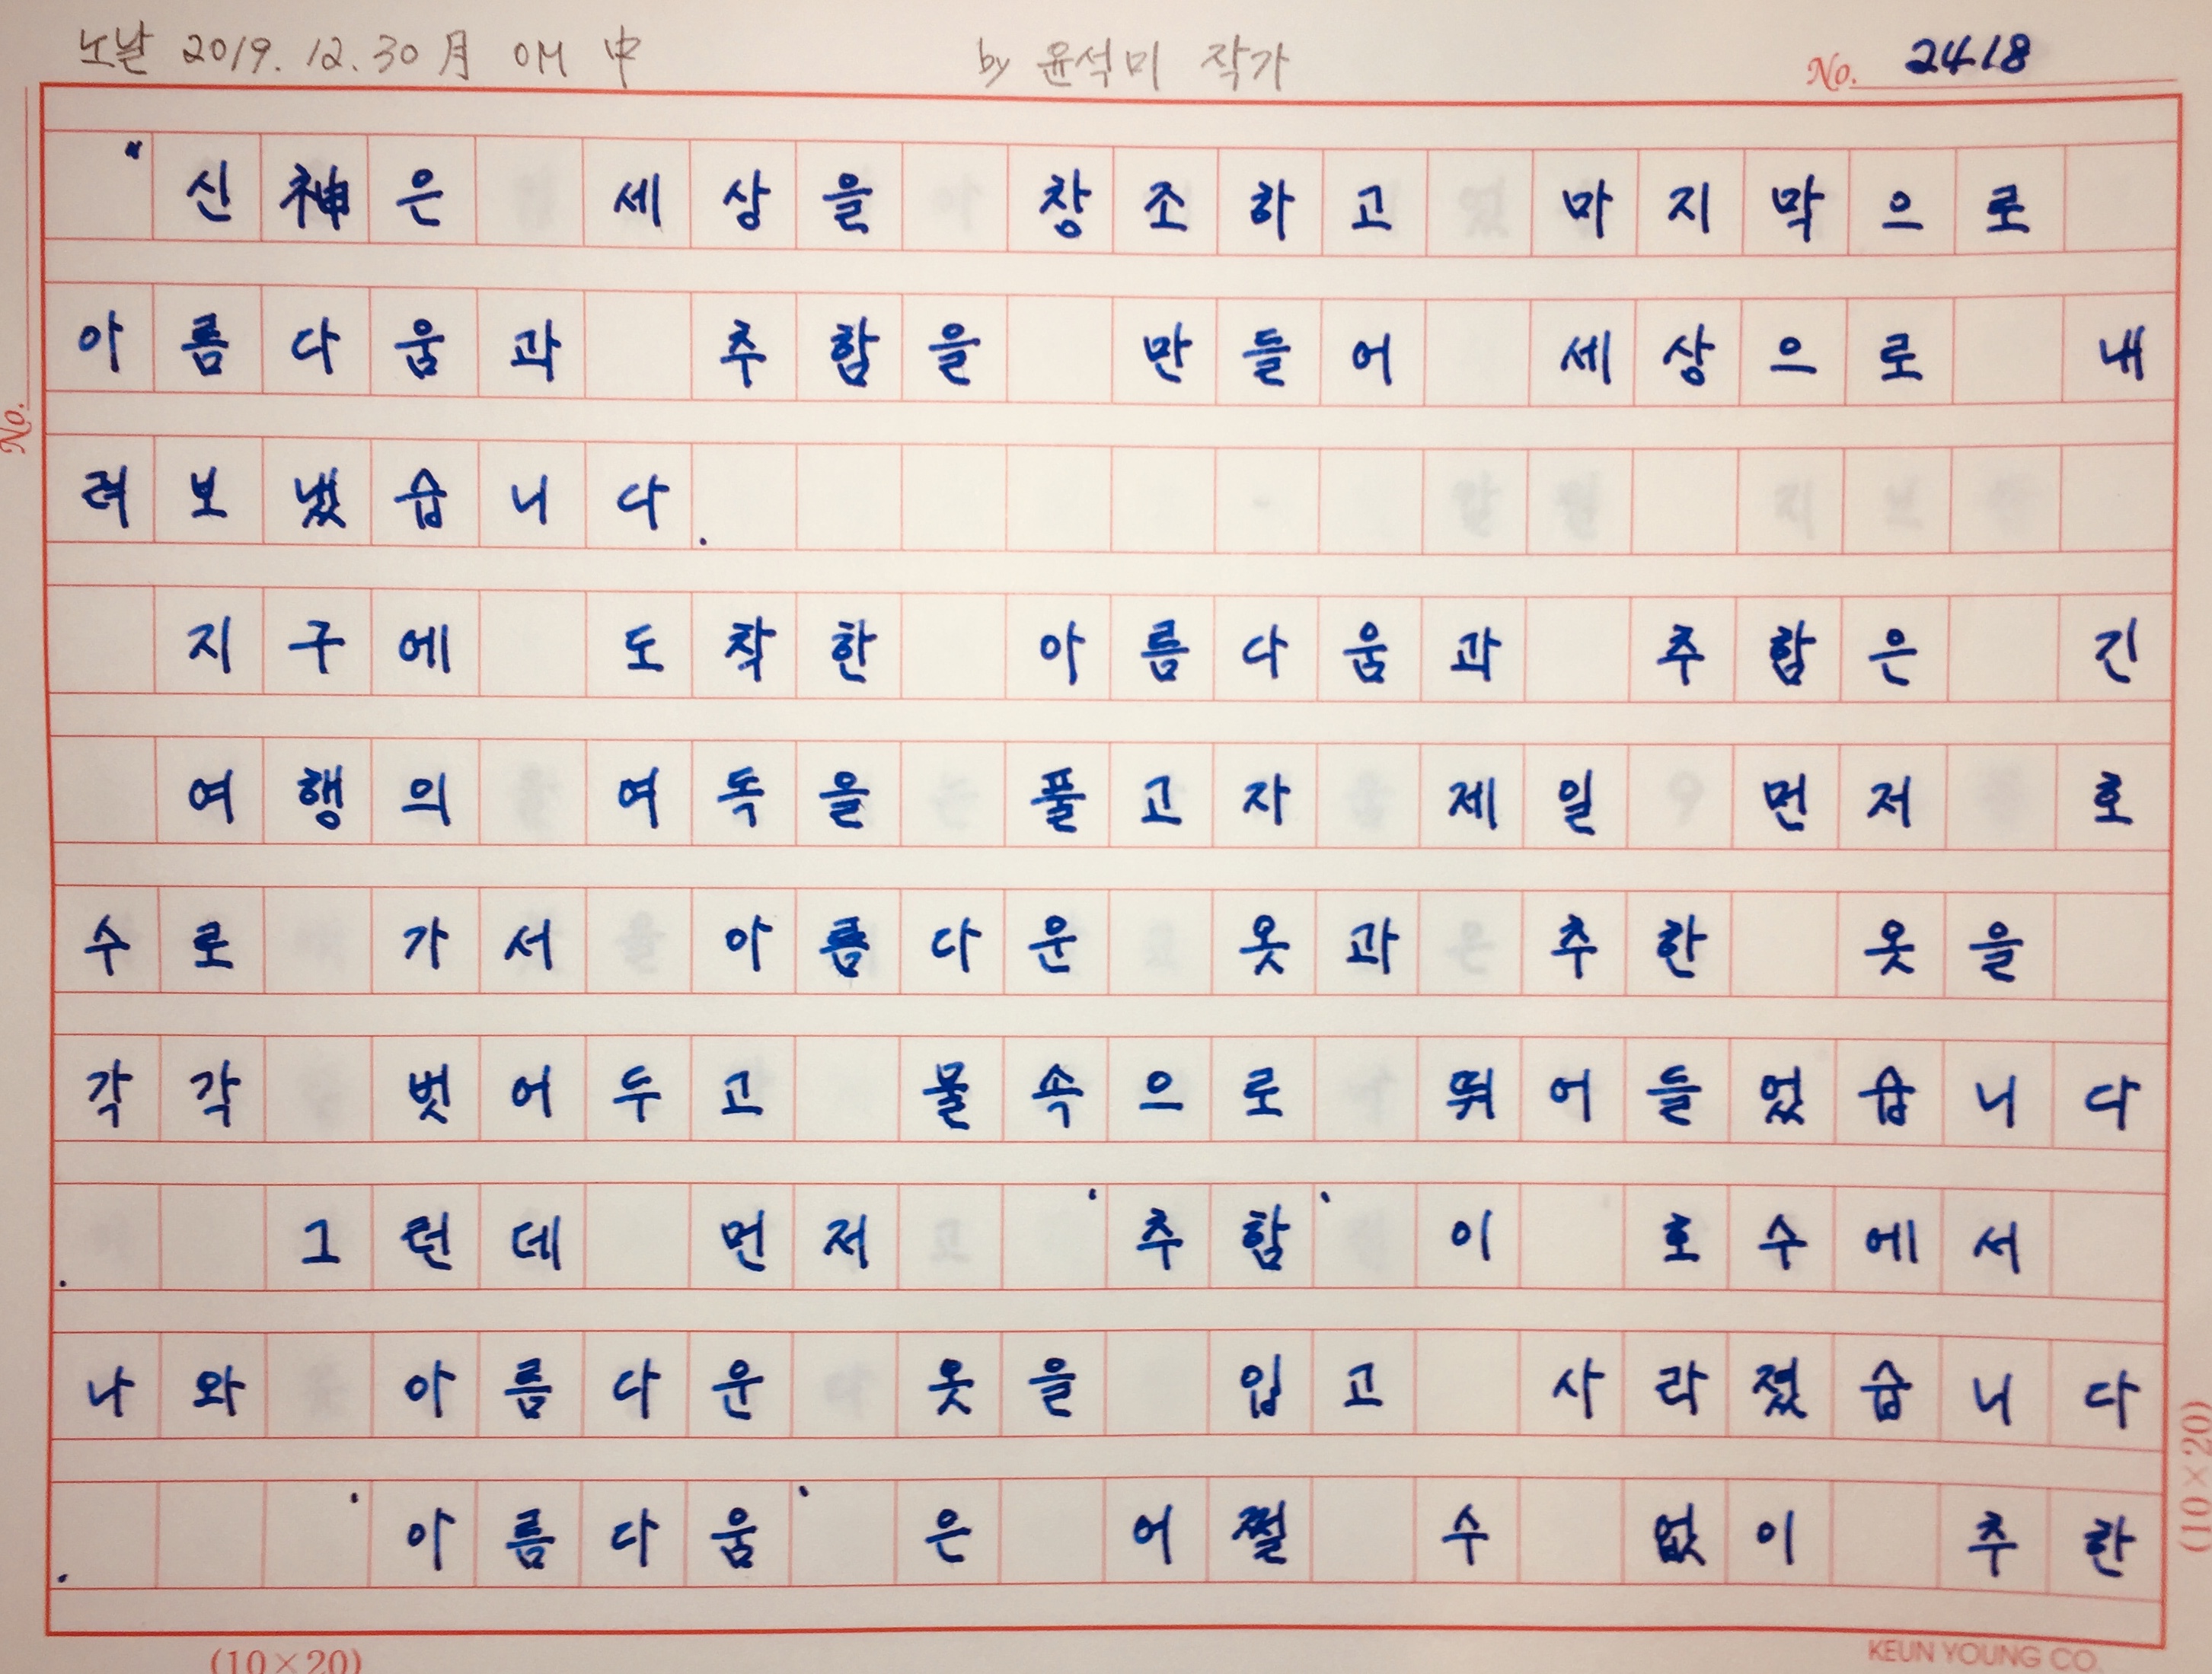 노날 2019. 12. 30 月 OM 中 by 윤석미 작가 No. 2418
"신神은 세상을 창조하고 마지막으로
아름다움과 추함을 만들어 세상으로 내
려보냈습니다.
지구에 도착한 아름다움과 추함은 긴
여행의 여독을 풀고자 제일 먼저 호
수로 가서 아름다운 옷과 추한 옷을
각각 벗어두고 물속으로 뛰어들었습니다
. 그런데 먼저 '추함'이 호수에서
나와 아름다운 옷을 입고 사라졌습니다
. '아름다움'은 어쩔 수 없이 추한
No.
(10×20)
(10×20)
KEUN YOUNG CO.